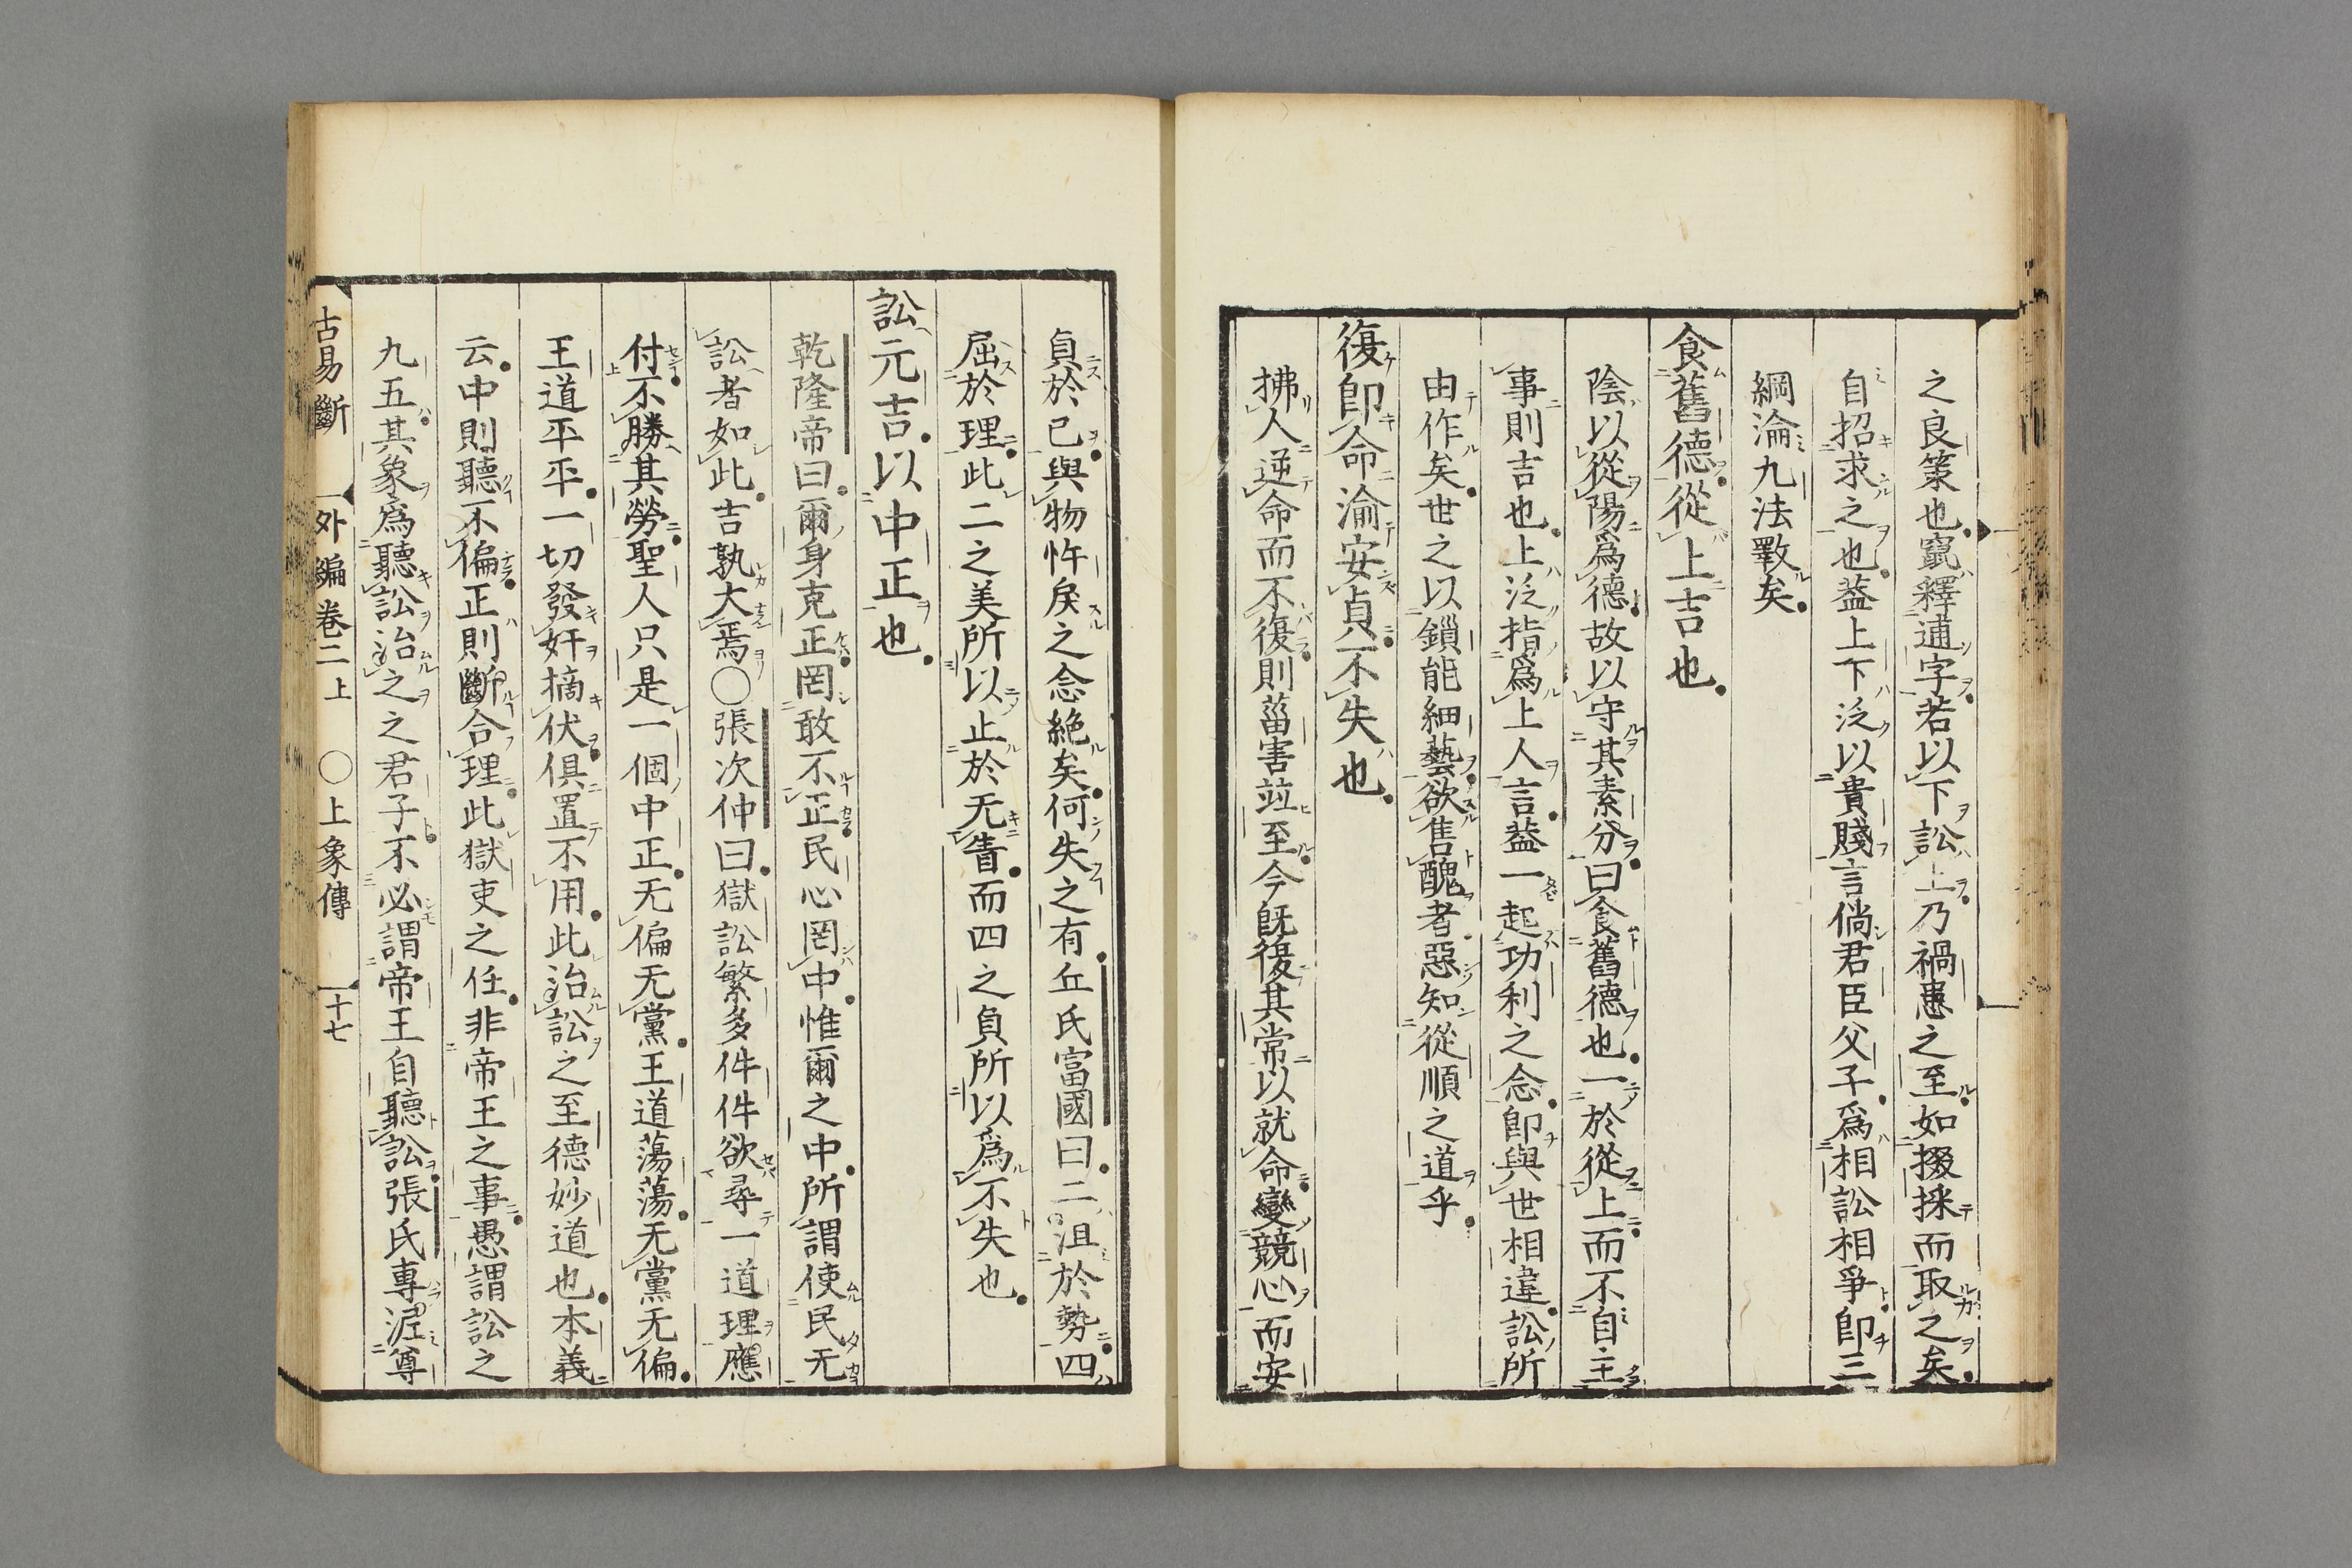 之良策也竄釋逋字若以下訟上乃禍患之至如掇採而取之矣
自招求之也葢上下泛以貴賤言倘君臣父子爲相訟相爭卽三
綱淪九法斁矣
食舊德從上吉也
陰以從陽爲德故以守其素分曰食舊德也一於從上而不自主
事則吉也上泛指爲上人言葢一起功利之念卽與世相違訟所
由作矣世之以鎖能細藝欲售醜者惡知從順之道乎
復卽命渝安貞不失也
拂人逆命而不復則菑害竝至今旣復其常以就命變競心而安
貞於已與物忤戾之念絶矣何失之有丘氏富國曰二沮於勢四
屈於理此二之美所以止於无眚而四之貞所以爲不失也
訟元吉以中正也
乾隆帝曰爾身克正罔敢不正民心罔中惟爾之中所謂使民无
訟者如此吉孰大焉〇張次仲曰獄訟繁多件件欲尋一道理應
付不勝其勞聖人只是一個中正无偏无黨王道蕩蕩无黨无偏
王道平平一切發奸摘伏俱置不用此治訟之至德妙道也本義
云中則聽不偏正則斷合理此獄吏之任非帝王之事愚謂訟之
九五其象爲聽訟治之之君子不必謂帝王自聽訟張氏專泥尊
古易斷 外編卷二上 〇上象傳 十七